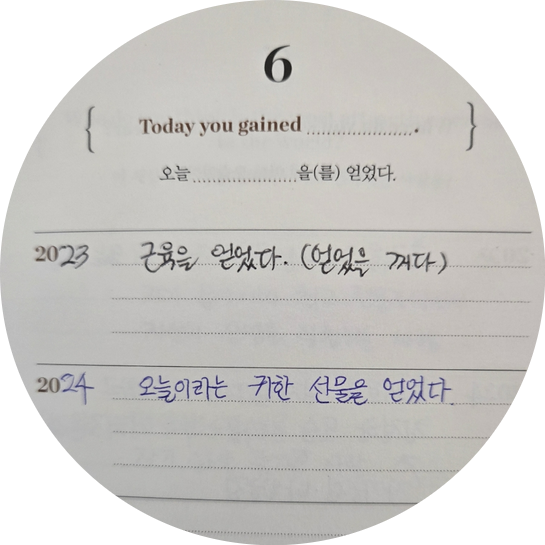 6
{ Today you gained .................... . }
오늘 .................... 을(를) 얻었다.
2023 근육을 얻었다. (얻었을 꺼다)
2024 오늘이라는 귀한 선물을 얻었다.